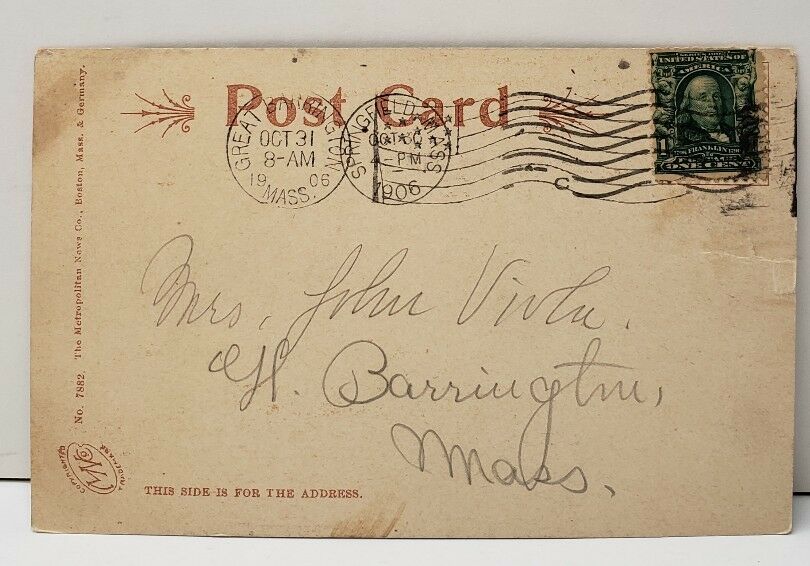 Post Card
GREAT BARRINGTON
OCT 31
8-AM
19 06
MASS.
SPRINGFIELD, MASS
OCT 30
-PM
1906
SERIES 1902
UNITED STATES OF
AMERICA
FRANKLIN
ONE CENT
Mrs. John Viola.
Gt. Barrington,
Mass.
THIS SIDE IS FOR THE ADDRESS.
No. 7882. The Metropolitan News Co., Boston, Mass. & Germany.
COPYRIGHTED
TRADEMARK